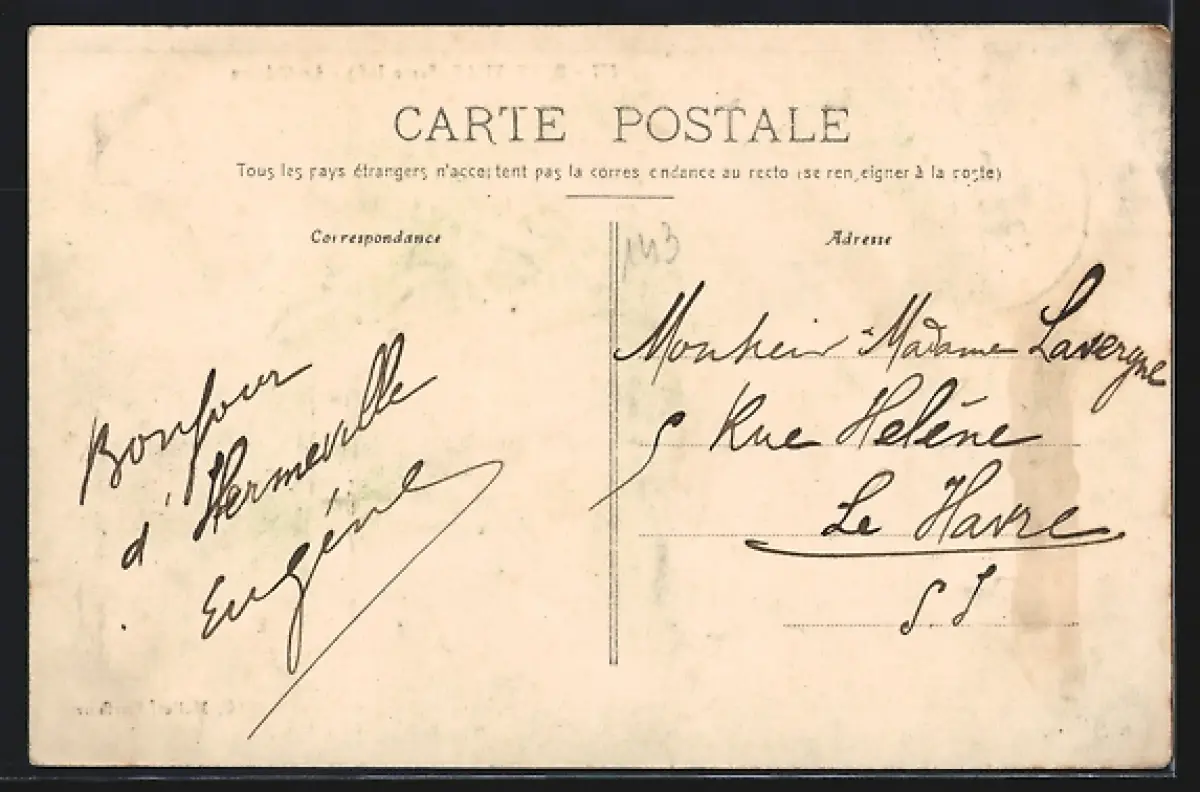 CARTE POSTALE
Tous les pays étrangers n'acceptent pas la correspondance au recto (se renseigner à la poste)
Correspondance
Adresse
143
Bonjour
d'Hermeville
Eugène
Monsieur Madame Lavergne
5 Rue Heléne
Le Havre
S. I